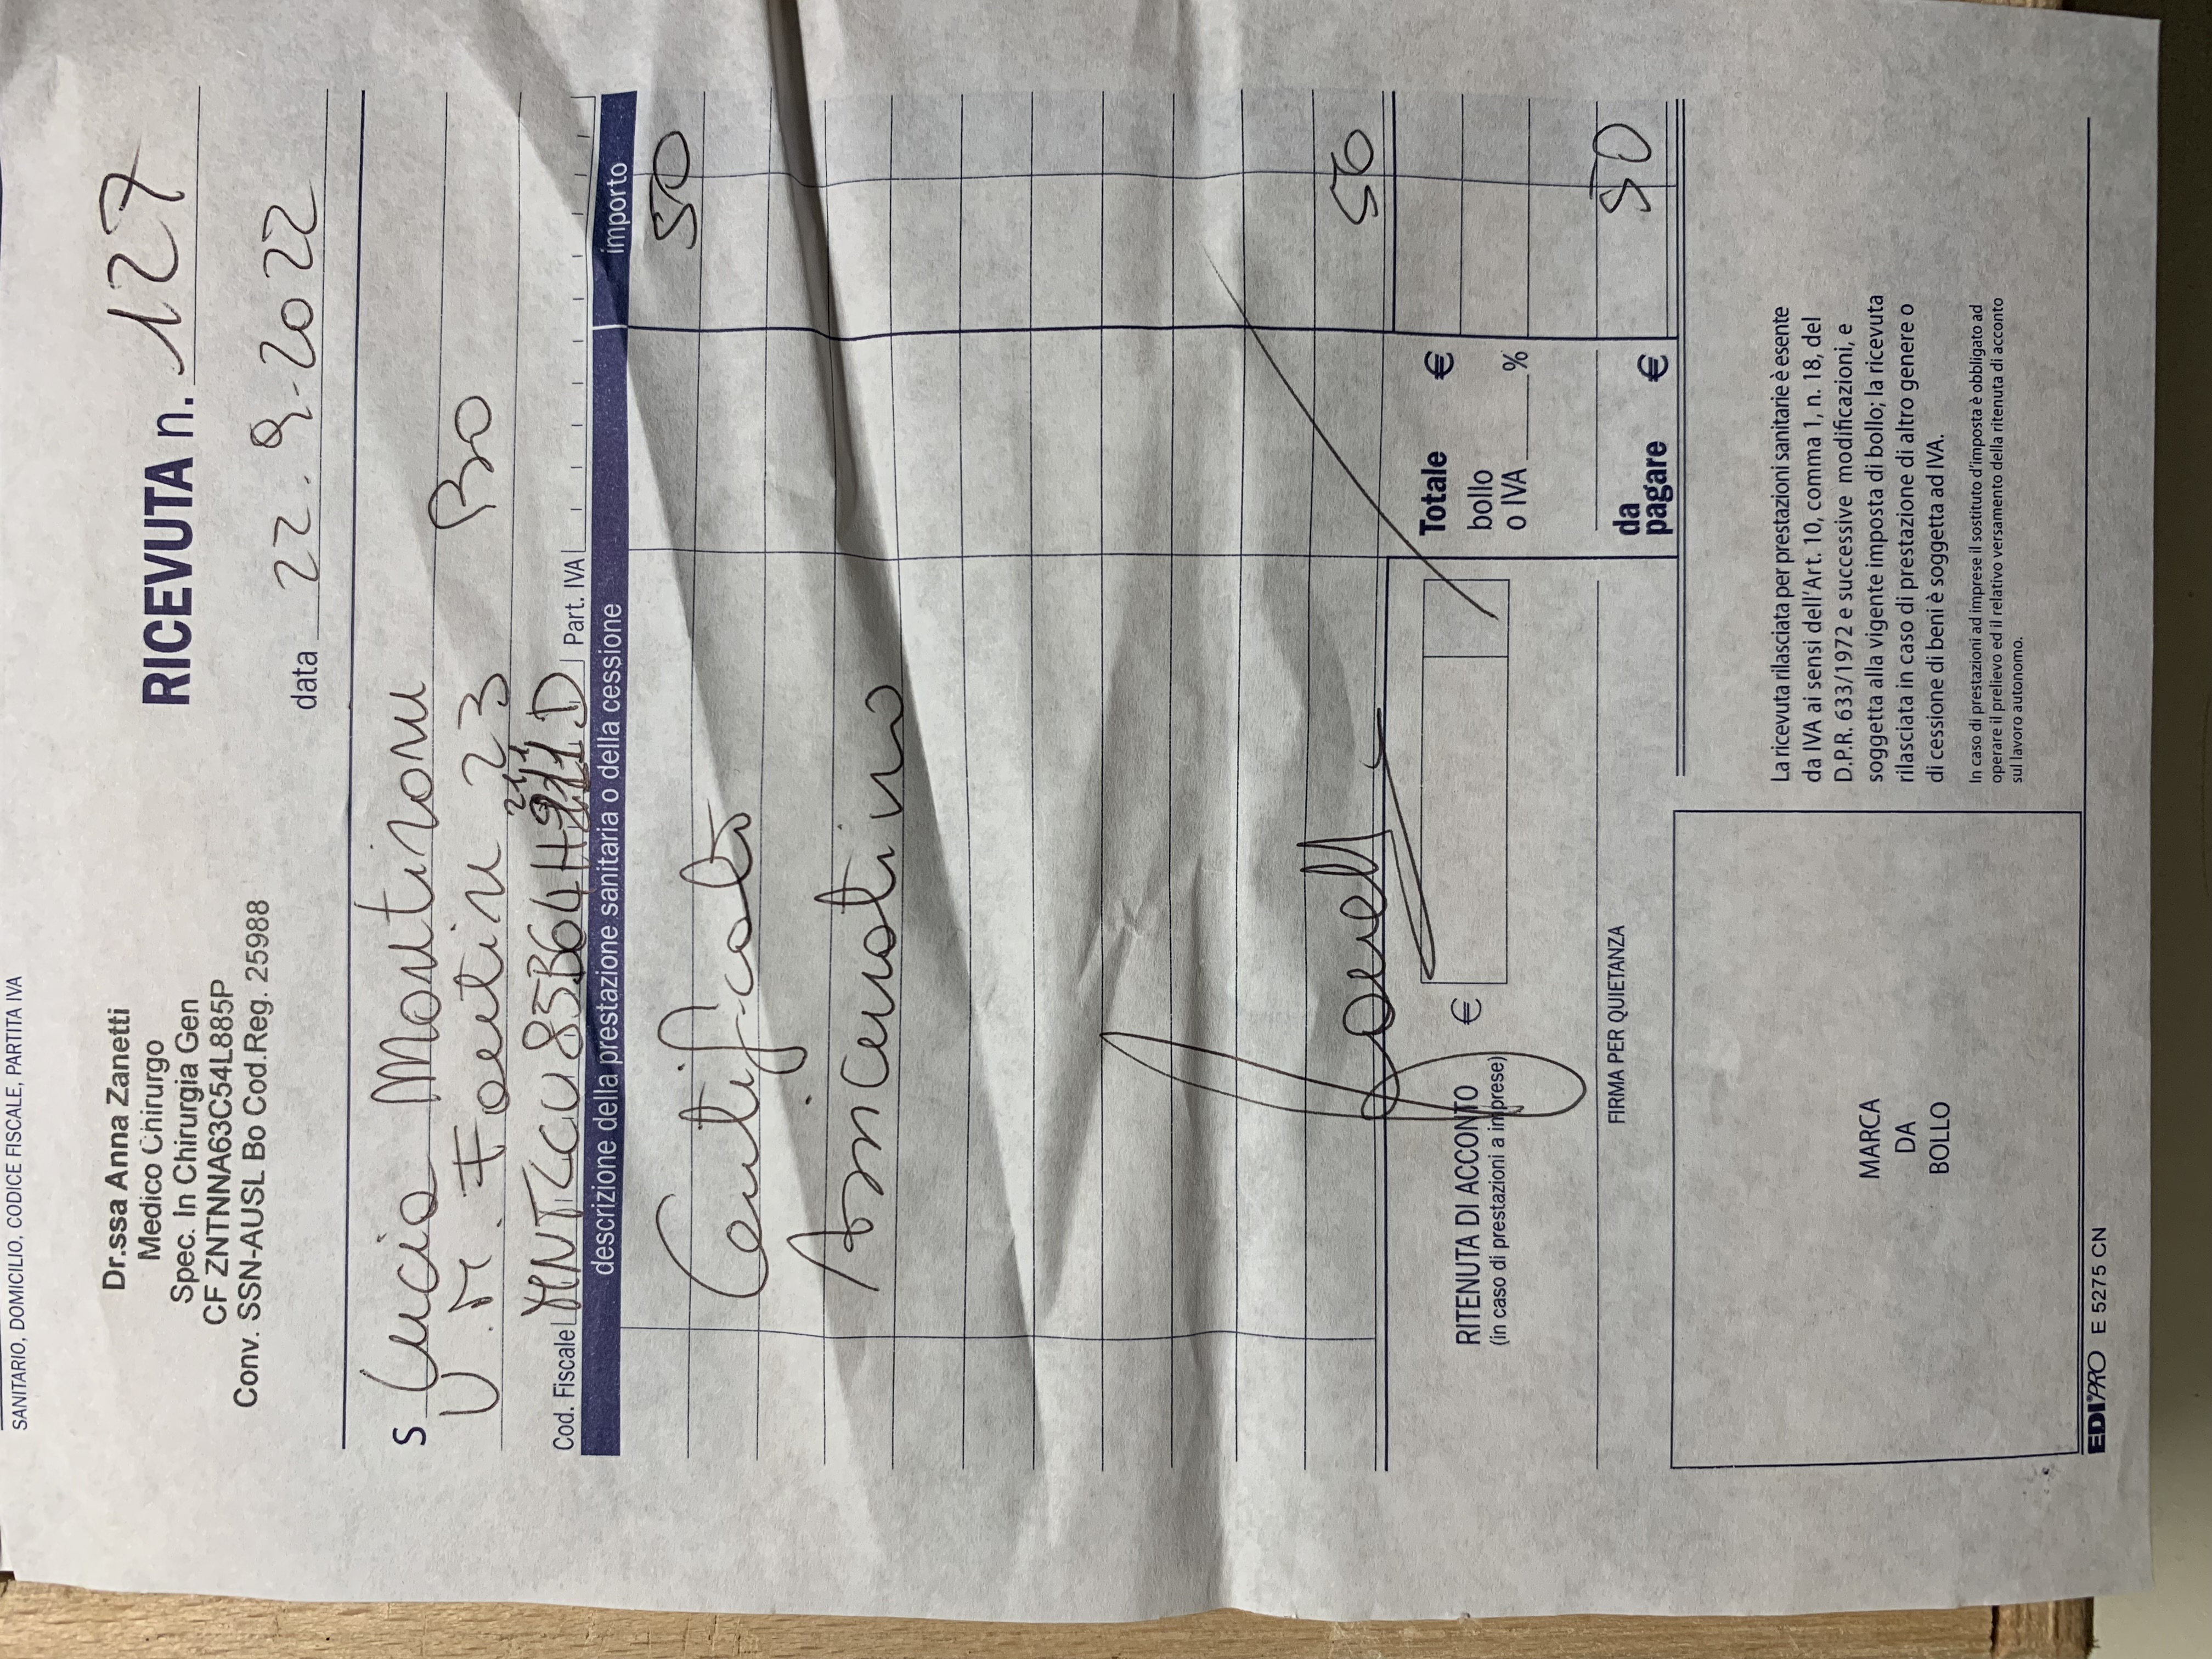 SANITARIO, DOMICILIO, CODICE FISCALE, PARTITA IVA
Dr.ssa Anna Zanetti
Medico Chirurgo
Spec. In Chirurgia Gen
CF ZNTNNA63C54L885P
Conv. SSN-AUSL Bo Cod.Reg. 25988
RICEVUTA n. 127
data 22.9.2022
S Lucia Montironi
V. M. Fantin 23 BO
211
Cod. Fiscale MNTLCU85B64H211D Part. IVA
descrizione della prestazione sanitaria o della cessione importo
50
Certificato
Assicurativo
50
Totale €
RITENUTA DI ACCONTO €
(in caso di prestazioni a imprese)
bollo
o IVA %
FIRMA PER QUIETANZA
da
pagare € 50
MARCA
DA
BOLLO
La ricevuta rilasciata per prestazioni sanitarie è esente
da IVA ai sensi dell'Art. 10, comma 1, n. 18, del
D.P.R. 633/1972 e successive modificazioni, e
soggetta alla vigente imposta di bollo; la ricevuta
rilasciata in caso di prestazione di altro genere o
di cessione di beni è soggetta ad IVA.
In caso di prestazioni ad imprese il sostituto d'imposta è obbligato ad
operare il prelievo ed il relativo versamento della ritenuta di acconto
sul lavoro autonomo.
EDIPRO E 5275 CN